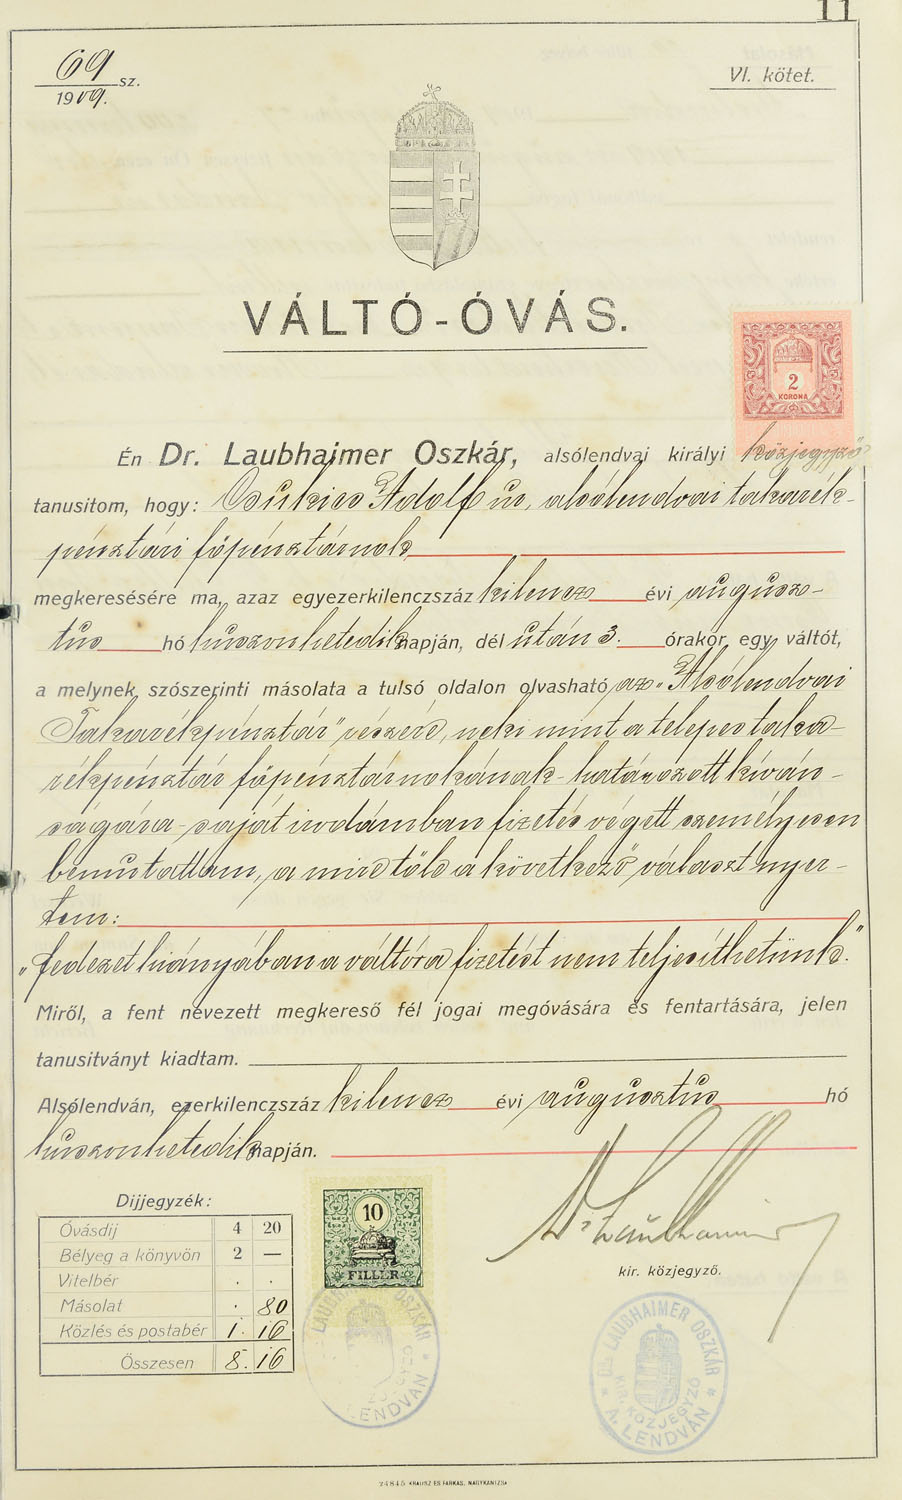 11
69 sz.
1909.
VI. kötet.
VÁLTÓ-ÓVÁS.
2
KORONA
Én Dr. Laubhaimer Oszkár, alsólendvai királyi közjegyző
tanusitom, hogy: Adolf ur, alsólendvai takarék-
pénztári főpénztárnok
megkeresésére ma, azaz egyezerkilenczszáz kilencz évi augusz-
tus hó huszonhetedik napján, dél után 3. órakor egy váltót,
a melynek szószerinti másolata a tulsó oldalon olvasható, az „Alsólendvai
Takarékpénztár" részére, neki mint a telepes taka-
rékpénztár főpénztárnokának határozott kíván-
ságára - saját irodámban fizetés végett személyesen
bemutattam, a mire tőle a következő választ nyer-
tem:
„fedezet hiányában a váltóra fizetést nem teljesíthetünk."
Miről, a fent nevezett megkereső fél jogai megóvására és fentartására, jelen
tanusitványt kiadtam.
Alsólendván, ezerkilenczszáz kilencz évi augusztus hó
huszonhetedik napján.
Dijjegyzék:
Óvásdij 4 20
Bélyeg a könyvön 2 —
Vitelbér . .
Másolat . 80
Közlés és postabér 1. 16
Összesen 8. 16
10
FILLÉR
Dr Laubhaimer
kir. közjegyző.
LAUBHAIMER OSZKÁR
A. LENDVÁN
Dr. LAUBHAIMER OSZKÁR
KIR. KÖZJEGYZŐ
A. LENDVÁN
24845 KRAUSZ ÉS FARKAS, NAGYKANIZSA